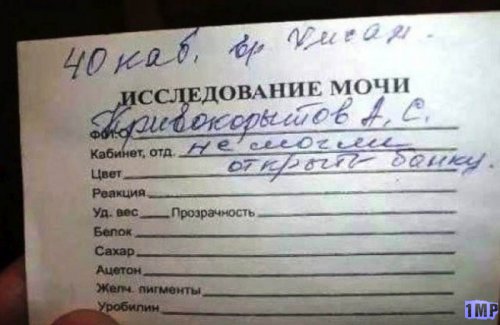 40 каб. вр
ИССЛЕДОВАНИЕ МОЧИ
Кривокорытов А. С.
Кабинет, отд. не могли
Цвет открыть банку.
Реакция
Уд. вес Прозрачность
Белок
Сахар
Ацетон
Желч. пигменты
Уробилин
1MP